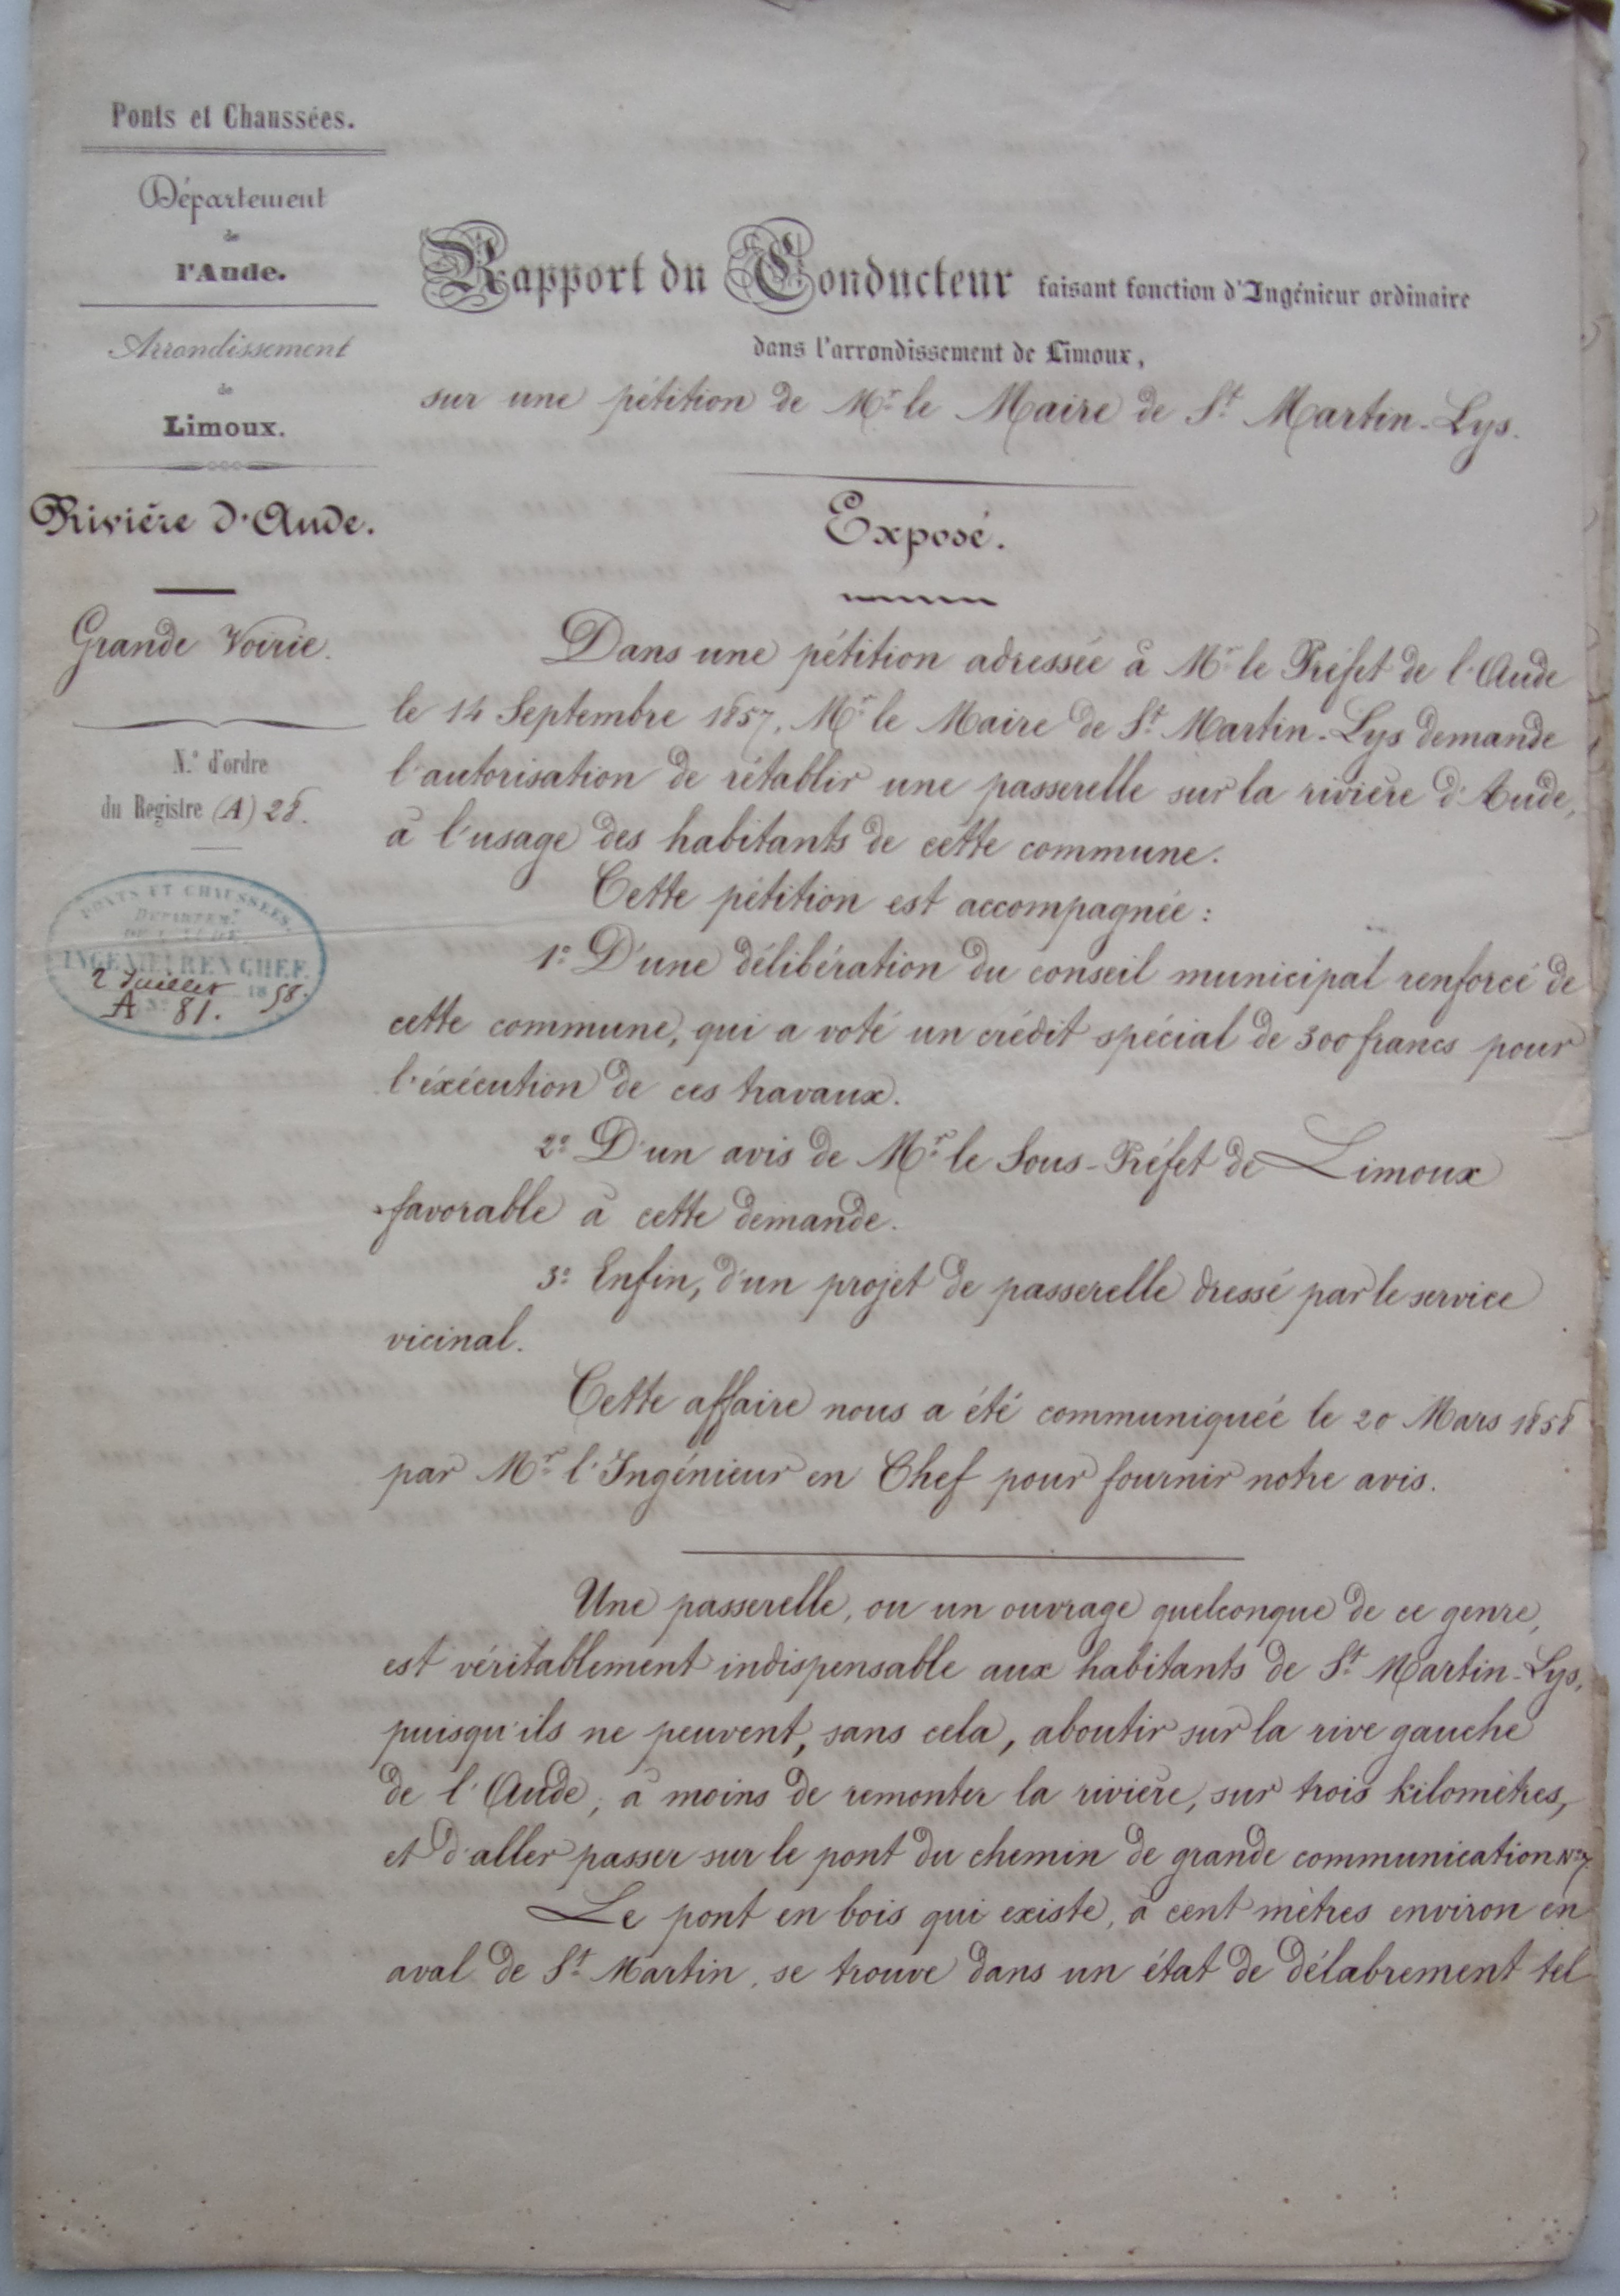 Ponts et Chaussées.
Département
de
l'Aude.
Arrondissement
de
Limoux.
Rivière d'Aude.
Grande Voirie.
N.° d'ordre
du Registre (A) 28.
PONTS ET CHAUSSÉES.
DÉPARTEM.T
DE L'AUDE
INGÉNIEUR EN CHEF.
2 Juillet 1858.
A N° 81.
Rapport du Conducteur faisant fonction d'Ingénieur ordinaire
dans l'arrondissement de Limoux,
sur une pétition de Mr le Maire de St Martin-Lys.
Exposé.
Dans une pétition adressée à Mr le Préfet de l'Aude
le 14 Septembre 1857, Mr le Maire de St Martin-Lys demande
l'autorisation de rétablir une passerelle sur la rivière d'Aude,
à l'usage des habitants de cette commune.
Cette pétition est accompagnée :
1° D'une délibération du conseil municipal renforcé de
cette commune, qui a voté un crédit spécial de 300 francs pour
l'éxécution de ces travaux.
2° D'un avis de Mr le Sous-Préfet de Limoux
favorable à cette demande.
3° Enfin, d'un projet de passerelle dressé par le service
vicinal.
Cette affaire nous a été communiquée le 20 Mars 1858
par Mr l'Ingénieur en Chef pour fournir notre avis.
Une passerelle, ou un ouvrage quelconque de ce genre,
est véritablement indispensable aux habitants de St Martin-Lys,
puisqu'ils ne peuvent, sans cela, aboutir sur la rive gauche
de l'Aude, à moins de remonter la rivière, sur trois kilomètres,
et d'aller passer sur le pont du chemin de grande communication N° 7.
Le pont en bois qui existe, à cent mètres environ en
aval de St Martin, se trouve dans un état de délabrement tel